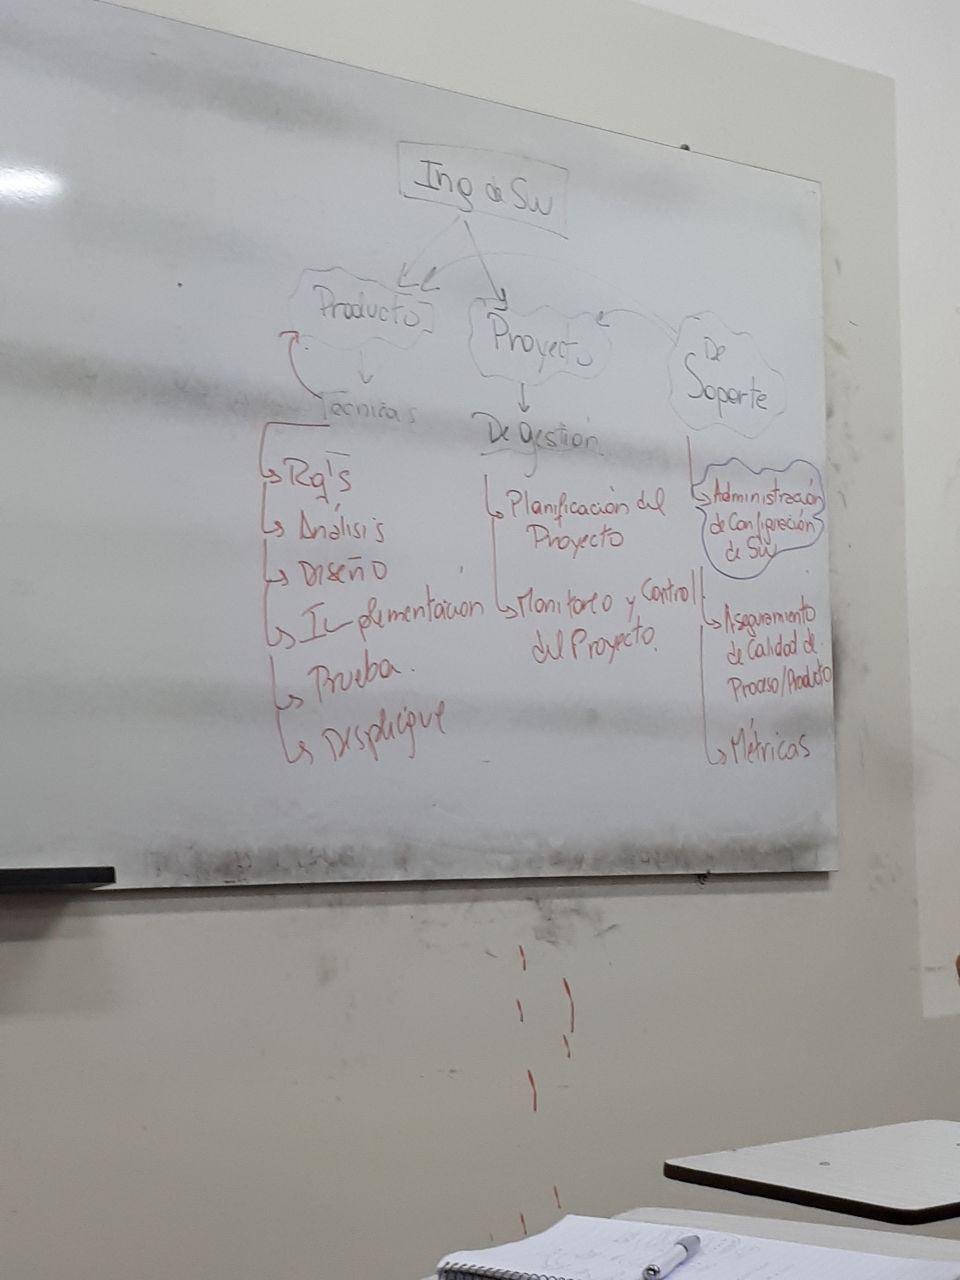 Ing de SW
Producto
Proyecto
De
Soporte
Técnicas
De gestión
Rq's
Análisis
Diseño
Implementación
Prueba.
Despliegue
Planificación del
Proyecto
Monitoreo y Control
del Proyecto.
Administración
de Configuración
de SW
Aseguramiento
de Calidad de
Proceso/Producto
Métricas